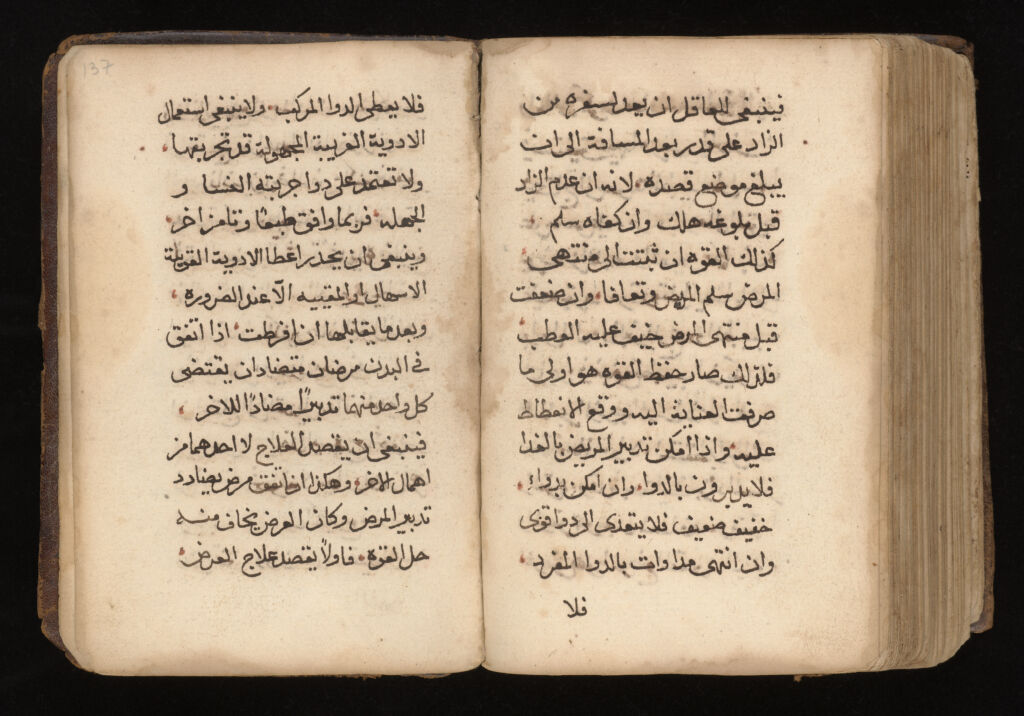 فينبغى للعاقل ان يعد لسفره من
الزاد على قدر بعد المسافة الى ان
يبلغ موضع قصده لانه ان عدم الزاد
قبل بلوغه هلك وان كفاه سلم
كذلك القوه ان ثبتت الى منتهى
المرض سلم المريض وتعافا وان ضعفت
قبل منتهى المرض خيف عليه العطب
فلذلك صار حفظ القوه هو اولى ما
صرفت العناية اليه ووقع الانعطاط
عليه واذا امكن تدبير المريض بالغدا
فلا يدبرون بالدوا وان امكن بدواء
خفيف ضعيف فلا يتعدى الى دوا قوى
وان انتهى مداوات بالدوا المفرد
فلا
137
فلا يعطى الدوا المركب ولا ينبغى استعمال
الادوية الغريبة المجهولة قد تجربتها
ولا تعتمد على دوا جربته النسا و
الجهله فربما وافق طبيعًا وتامر اخر
وينبغى ان يحذر اعطا الادوية القويلة
الاسهال او المقييه الّا عند الضروره
وبعد ما يقابلها ان افرطت اذا اتفق
فى البدن مرضان متضادان يقتضى
كل واحد منهما تدبيرًا مضادًا للاخر
فينبغى ان يقصد العلاج لاحدهما من
اهمال الاخر وهكذا اذا اتفق مرض يضادد
تدبير المرض وكان العرض يخاف منه
حل القوه فاولًا يقصد علاج العرض